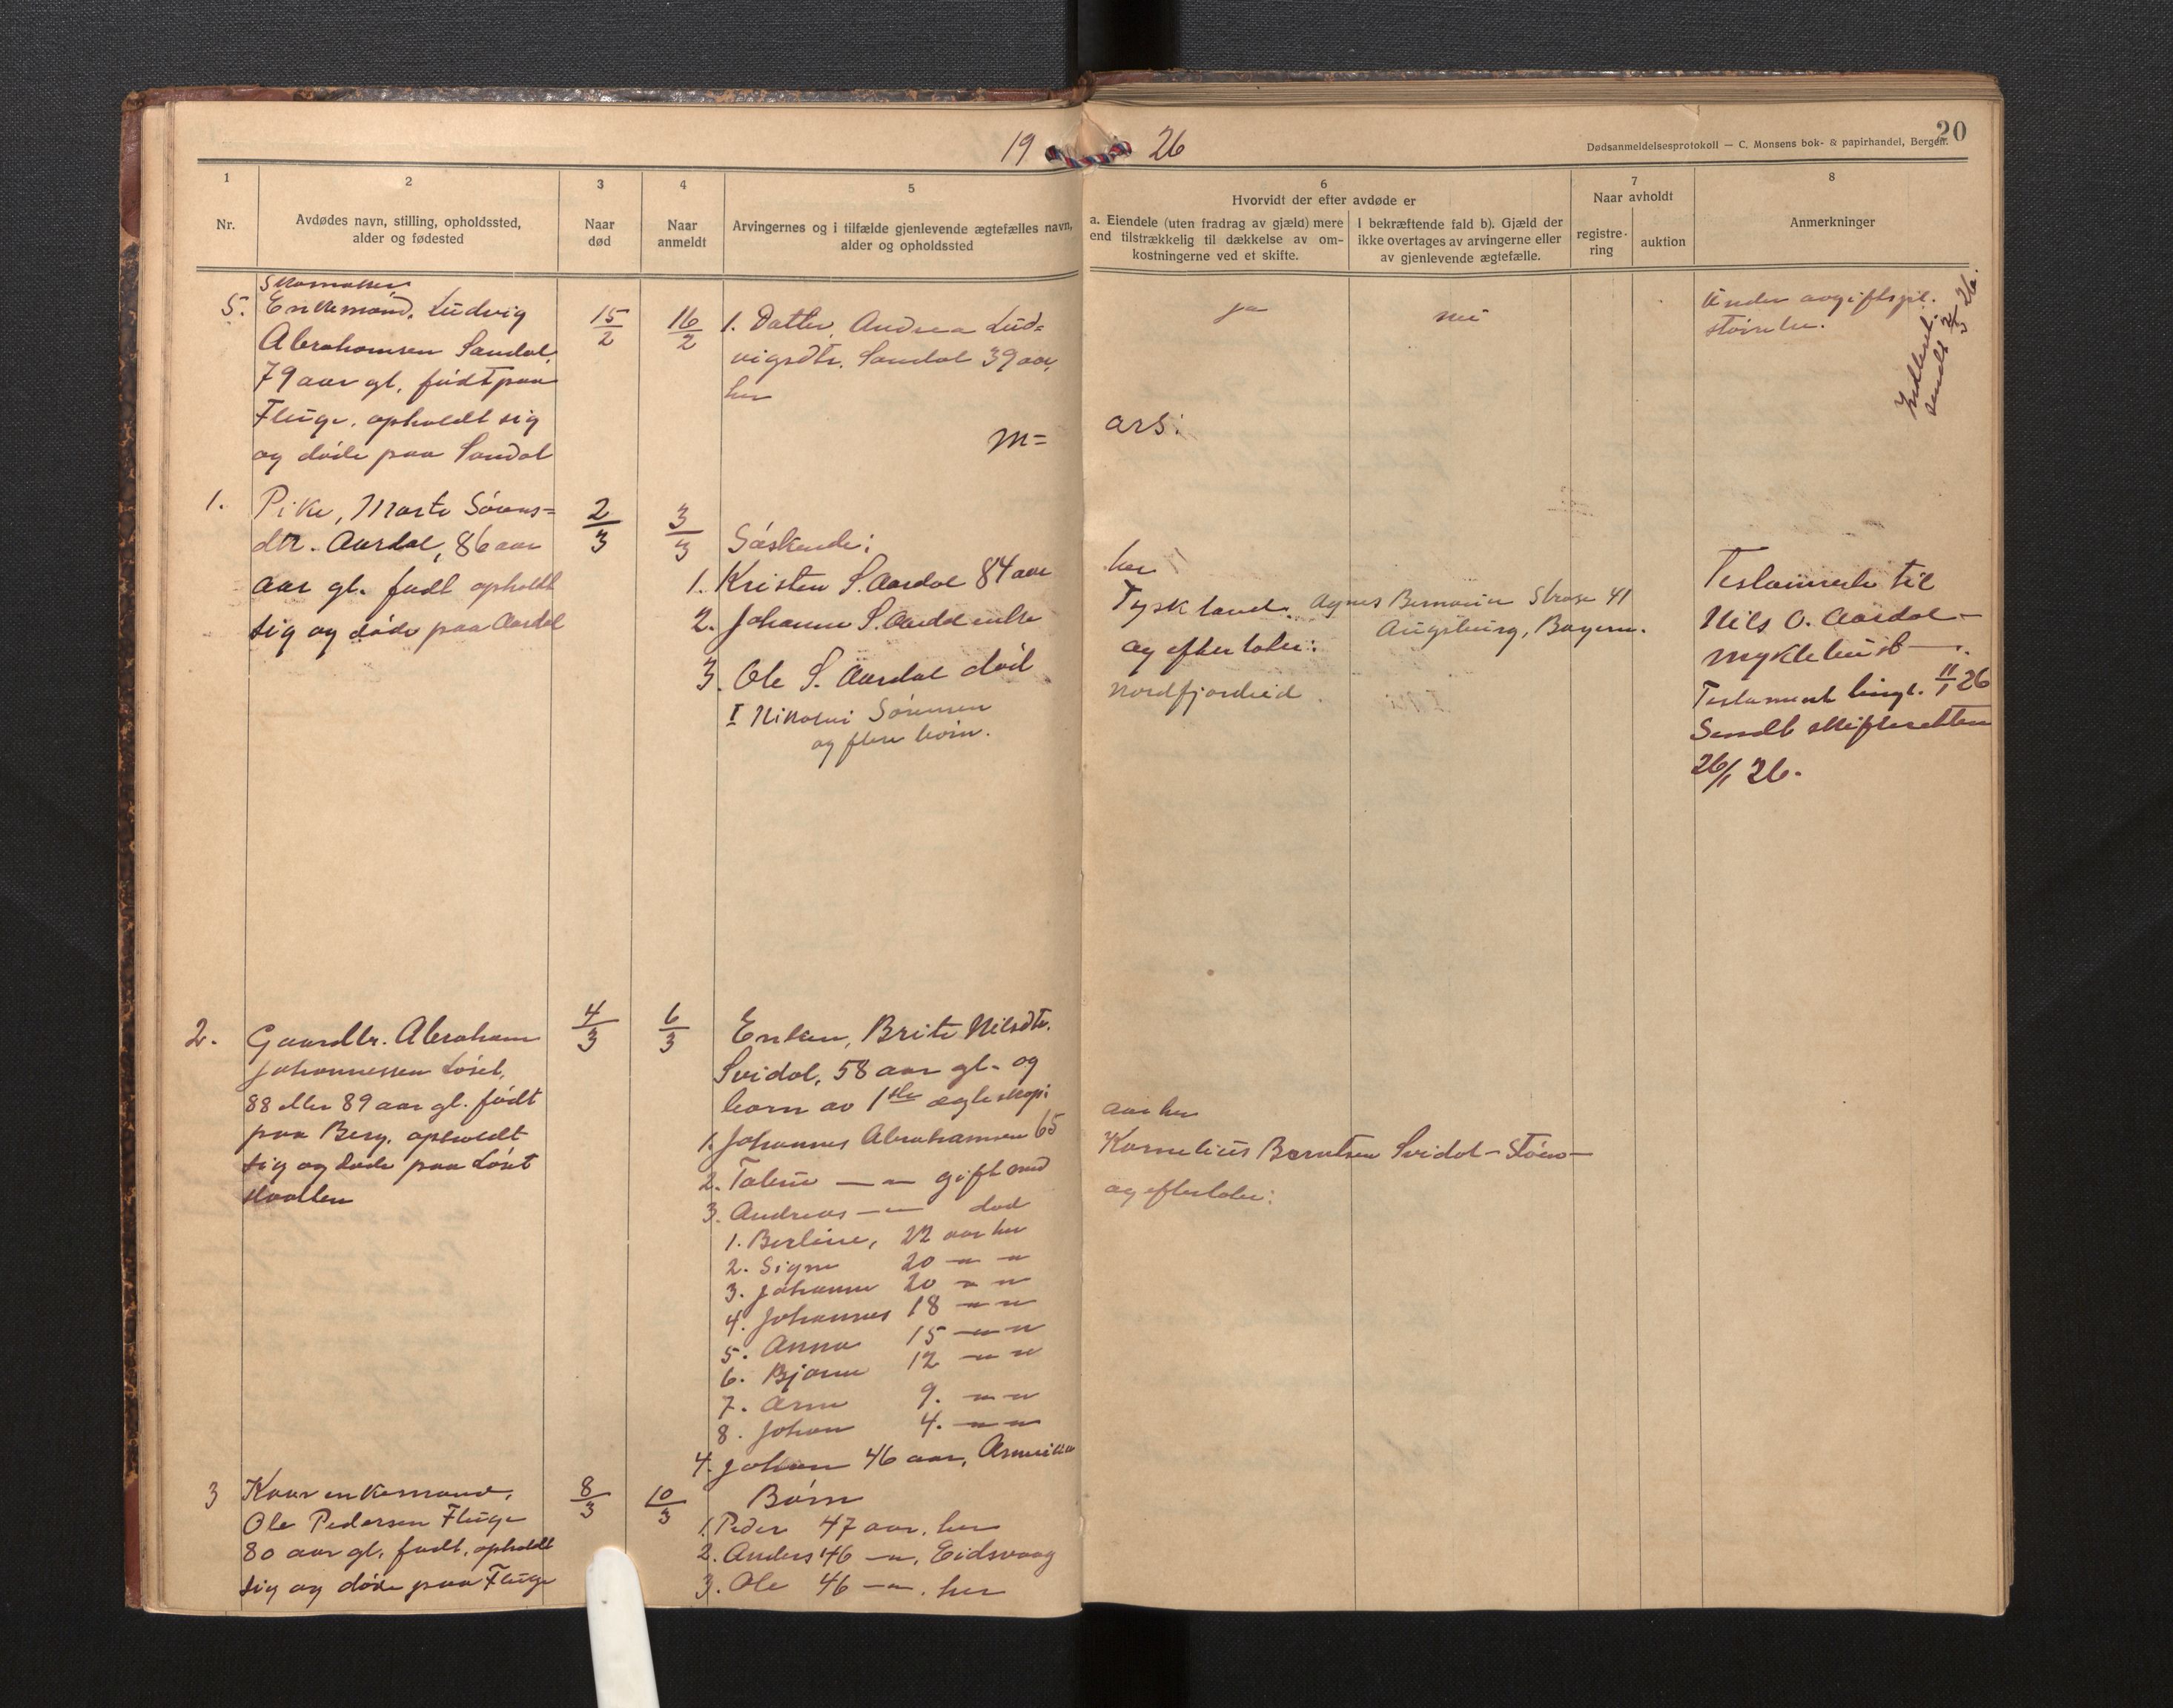 19 26
20
Dødsanmeldelsesprotokoll — C. Monsens bok- & papirhandel, Bergen.
1
Nr.
2
Avdødes navn, stilling, opholdssted,
alder og fødested
3
Naar
død
4
Naar
anmeldt
5
Arvingernes og i tilfælde gjenlevende ægtefælles navn,
alder og opholdssted
6
Hvorvidt der efter avdøde er
a. Eiendele (uten fradrag av gjæld) mere
end tilstrækkelig til dækkelse av om-
kostningerne ved et skifte.
I bekræftende fald b). Gjæld der
ikke overtages av arvingerne eller
av gjenlevende ægtefælle.
7
Naar avholdt
registre-
ring
auktion
8
Anmerkninger
Skomaker
5. Enkemand, Ludvig
Abrahamsen Sandal,
79 aar gl. født paa
Fluge, opholdt sig
og døde paa Sandal
15/2
16/2
1. Datter, Andrea Lud=
vigsdtr. Sandal 39 aar,
her
ja
nei
Under avgiftspl.
størrelse.
sendt 2/3 26.
M= ars:
1. Pike, Marte Sørens=
dtr. Aardal, 86 aar
aar gl. født opholdt
sig og døde paa Aardal
2/3
3/3
Søskende:
1. Kristen S. Aardal 84 aar
her
2. Johanne S. Aardal enke
Tyskland. Agnes Bernauer Strase 41
Augsburg, Bayern.
3. Ole S. Aardal død
og efterlater:
I Nikolai Sørensen
Nordfjordeid
og flere børn.
Testamente til
Nils O. Aardal —
Myklebust —
Testament tingl. 11/1 26
Sendt skifteretten
26/1 26.
2. Gaardbr. Abraham
Johannessen Løset,
88 eller 89 aar gl. født
paa Berg, opholdt
sig og døde paa Løset
4/3
6/3
Enken, Brite Nilsdtr.
Svidal, 58 aar gl. og
born av 1ste ægteskap:
1. Johannes Abrahamsen 65
aar her
2. Taline — " — gift med
Kornelius Berntsen Svidal - Støro -
3. Andreas — " — død
og efterlater:
1. Berline, 22 aar her
2. Signe 20 — " — "
3. Johanne 20 — " — "
4. Johannes 18 — " — "
5. Anna 15 — " — "
6. Bjarne 12 — " — "
7. Arne 9. — " — "
8. Johan 4. — " — "
4. Johan 46 aar, Amerika
3 Kaarenkemand,
Ole Pedersen Fluge
80 aar gl. født, opholdt
sig og døde paa Fluge
8/3
10/3
Børn
1. Peder 47 aar, her
2. Anders 46 — " —, Eidsvaag
3. Ole 46 — " —, her